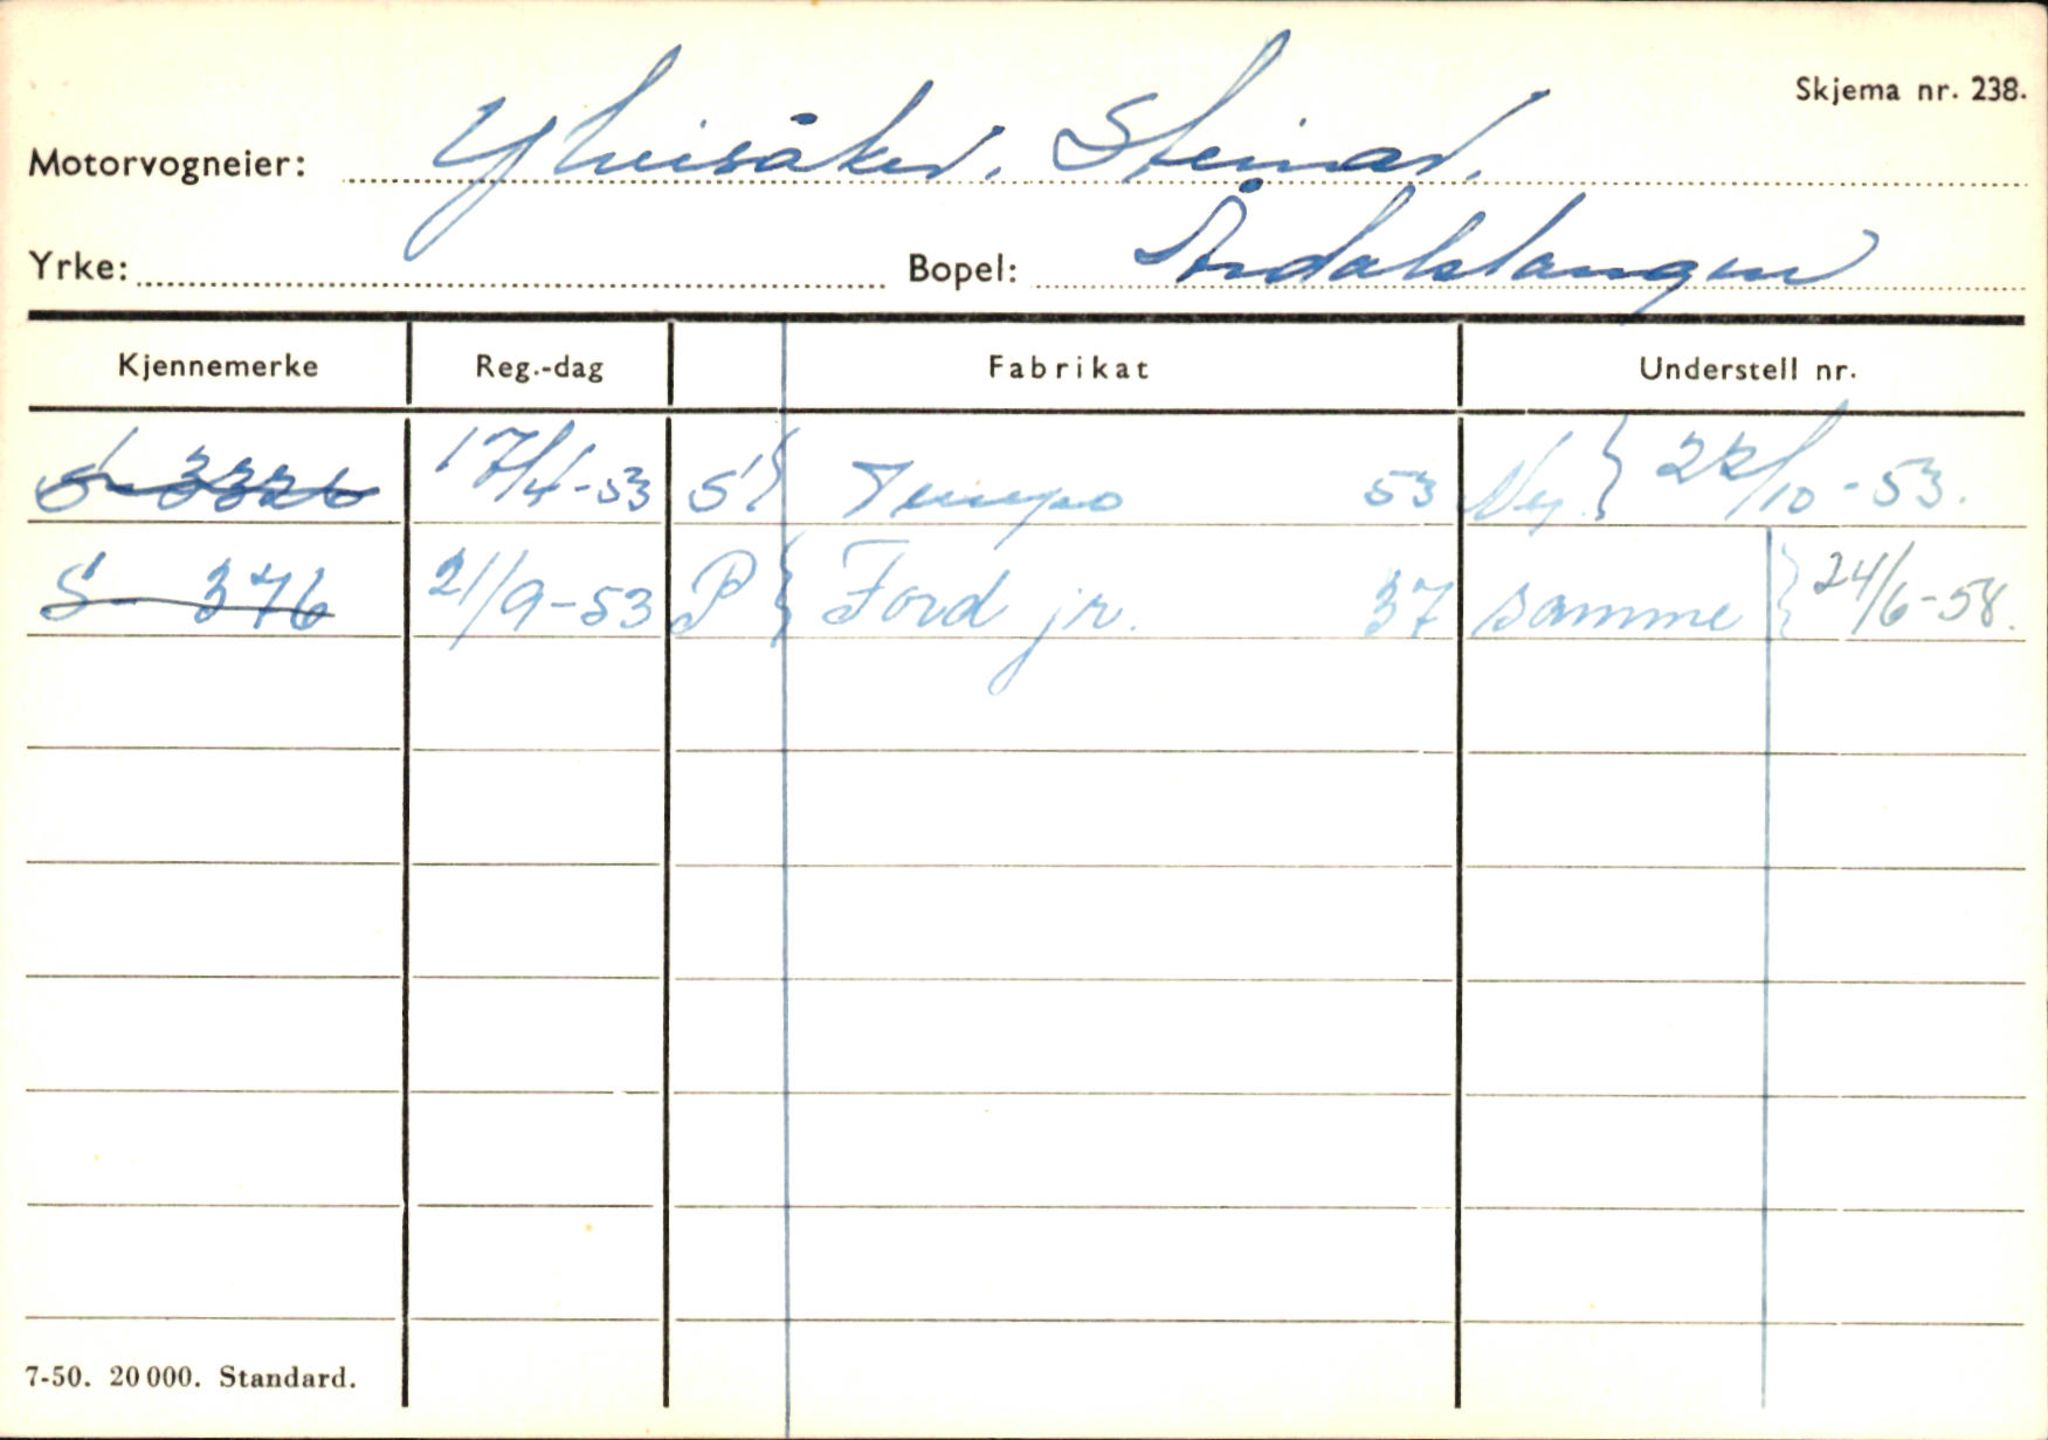 Skjema nr. 238.
Motorvogneier: Ylvisåker, Steinar.
Yrke: Bopel: Årdalstangen
Kjennemerke Reg.-dag Fabrikat Understell nr.
S 3326 17/4-53 S } Tempo 53 Ny. } 22/10-53.
S- 376 21/9-53 P } Ford jr. 37 samme } 24/6-58.
7-50. 20 000. Standard.